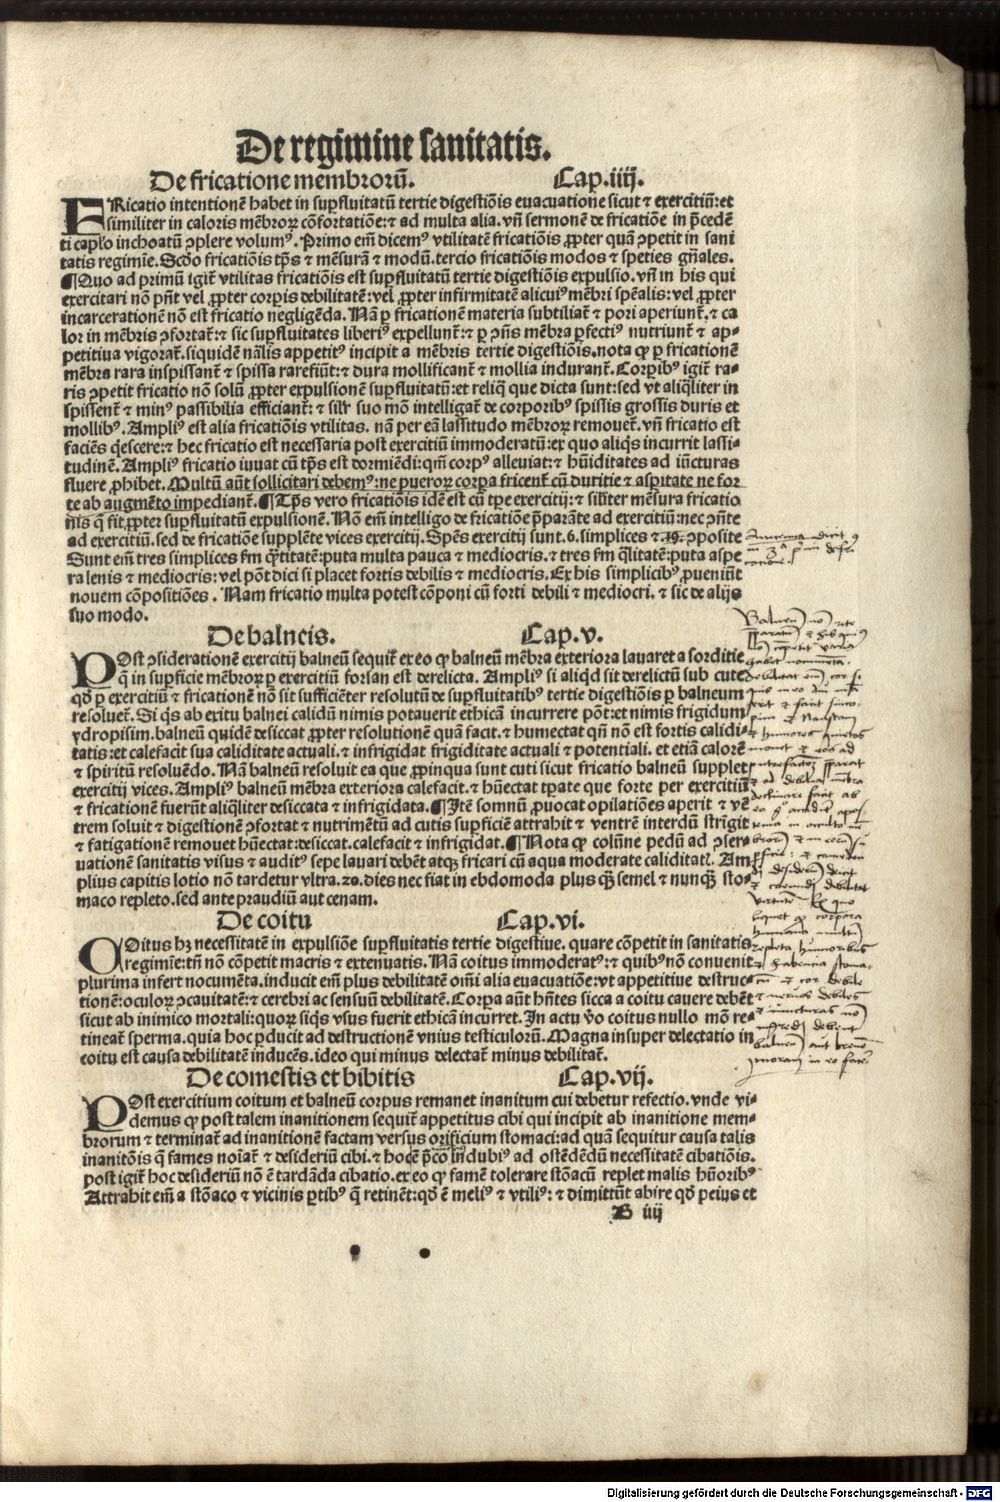 De regimine sanitatis.
De fricatione membrorū. Cap.iiij.
FRicatio intentionē habet in suꝑfluitatū tertie digestiōis euacuatione sicut ⁊ exercitiū:et
similiter in caloris mēbroꝝ cōfortatiōe:⁊ ad multa alia. vñ sermonē de fricatiōe in p̄cedē
ti capl'o inchoatū ꝯplere volumꝰ. Primo em̄ dicemꝰ vtilitatē fricatiōis ꝓpter quā ꝯpetit in sani
tatis regimīe. Scd̄o fricatiōis tp̄s ⁊ mēsurā ⁊ modū. tercio fricatiōis modos ⁊ speties gn̄ales.
¶Quo ad primū igit̄ vtilitas fricatiōis est suꝑfluitatū tertie digestiōis expulsio. vñ in his qui
exercitari nō pn̄t vel ꝓpter corꝑis debilitatē: vel ꝓpter infirmitatē alicuiꝰ mēbri spēalis: vel ꝓpter
incarcerationē nō est fricatio negligēda. Nā ꝑ fricationē materia subtiliat̄ ⁊ pori aperiunt̄. ⁊ ca
lor in mēbris ꝯfortat̄: ⁊ sic suꝑfluitates liberiꝰ expellunt̄: ⁊ ꝑ ꝯn̄s mēbra ꝑfectiꝰ nutriunt̄ ⁊ ap-
petitiua vigorat̄. siquidē nāl̄is appetitꝰ incipit a mēbris tertie digestiōis. nota ꝙ ꝑ fricationē
mēbra rara inspissant̄ ⁊ spissa rarefiūt: ⁊ dura mollificant̄ ⁊ mollia indurant̄. Corꝑibꝰ igit̄ ra-
ris ꝯpetit fricatio nō solū ꝓpter expulsionē suꝑfluitatū: et reliq̄ que dicta sunt: sed vt aliq̄liter in
spissent̄ ⁊ minꝰ passibilia efficiant̄: ⁊ sil'r suo mō intelligat̄ de corporibꝰ spissis grossis duris et
mollibꝰ. Ampliꝰ est alia fricatiōis vtilitas. nam per eā lassitudo mēbroꝝ remouet̄. vñ fricatio est
faciēs q̇escere: ⁊ hec fricatio est necessaria post exercitiū immoderatū: ex quo aliq̇s incurrit lassi-
tudinē. Ampliꝰ fricatio iuuat cū tp̄s est dormiēdi: qm̄ corpꝰ alleuiat: ⁊ hūiditates ad iūcturas
fluere ꝓhibet. Multū aūt sollicitari debemꝰ: ne pueroꝝ corꝑa fricent̄ cū duritie ⁊ asꝑitate ne for
te ab augmēto impediant̄. ¶Tp̄s vero fricatiōis idē est cū tꝑe exercitij: ⁊ sil'iter mēsura fricatio
nis q̄ fit ꝓpter suꝑfluitatū expulsionē. Nō em̄ intelligo de fricatiōe p̄parāte ad exercitiū: nec ꝯn̄te
ad exercitiū. sed de fricatiōe supplēte vices exercitij. Spēs exercitij sunt .6. simplices ⁊ .19. ꝯposite
Sunt em̄ tres simplices s̄m q̄ntitatē: puta multa pauca ⁊ mediocris. ⁊ tres s̄m q̄litatē: puta aspe
ra lenis ⁊ mediocris: vel pōt dici si placet fortis debilis ⁊ mediocris. Ex his simplicibꝰ ꝓueniūt
nouem cōpositiōes. Nam fricatio multa potest cōponi cū forti debili ⁊ mediocri. ⁊ sic de alijs
suo modo.
De balneis. Cap.v.
POst ꝯsiderationē exercitij balneū sequit̄ ex eo ꝙ balneū mēbra exteriora lauaret a sorditie
q̄ in suꝑficie mēbroꝝ ꝑ exercitiū forsan est derelicta. Ampliꝰ si aliqd̄ sit derelictū sub cute
qd̄ ꝑ exercitiū ⁊ fricationē nō sit sufficiēter resolutū de suꝑfluitatibꝰ tertie digestiōis ꝑ balneum
resoluet̄. Si q̇s ab exitu balnei calidū nimis potauerit ethicā incurrere pōt: et nimis frigidum
ydropisim. balneū quidē desiccat ꝓpter resolutionē quā facit. ⁊ humectat qn̄ nō est fortis calidi-
tatis: et calefacit sua caliditate actuali. ⁊ infrigidat frigiditate actuali ⁊ potentiali. et etiā calorē
⁊ spiritū resoluēdo. Nā balneū resoluit ea que ꝓpinqua sunt cuti sicut fricatio balneū supplet
exercitij vices. Ampliꝰ balneū mēbra exteriora calefacit. ⁊ hūectat tꝑate que forte per exercitiū
⁊ fricationē fuerūt aliq̄liter desiccata ⁊ infrigidata. ¶Itē somnū ꝓuocat opilatiōes aperit ⁊ vē
trem soluit ⁊ digestionē ꝯfortat ⁊ nutrimētū ad cutis suꝑficiē attrahit ⁊ ventrē interdū strīgit
⁊ fatigationē remouet hūectat: desiccat. calefacit ⁊ infrigidat. ¶Nota ꝙ colūne pedū ad ꝯser
uationē sanitatis visus ⁊ auditꝰ sepe lauari debēt atqꝫ fricari cū aqua moderate caliditatl. Am
plius capitis lotio nō tardetur vltra .20. dies nec fiat in ebdomoda plus q̄ꝫ semel ⁊ nunq̄ꝫ sto-
maco repleto. sed ante prandiū aut cenam.
De coitu Cap.vi.
COitus hꝫ necessitatē in expulsiōe suꝑfluitatis tertie digestiue. quare cōpetit in sanitatis
regimīe: tn̄ nō cōpetit macris ⁊ extenuatis. Nā coitus immoderatꝰ: ⁊ quibꝰ nō conuenit
plurima infert nocumēta. inducit em̄ plus debilitatē om̄i alia euacuatiōe: vt appetitiue destruc
tionē: oculoꝝ ꝯcauitatē: ⁊ cerebri ac sensuū debilitatē. Corꝑa aūt hn̄tes sicca a coitu cauere debēt
sicut ab inimico mortali: quoꝝ siq̇s vsus fuerit ethicā incurret. In actu v̄o coitus nullo mō re-
tineat̄ sperma. quia hoc ꝑducit ad destructionē vnius testiculorū. Magna insuper delectatio in
coitu est causa debilitatē inducēs. ideo qui minus delectat̄ minus debilitat̄.
De comestis et bibitis Cap.vij.
POst exercitium coitum et balneū corpus remanet inanitum cui debetur refectio. vnde vi-
demus ꝙ post talem inanitionem sequit̄ appetitus cibi qui incipit ab inanitione mem-
brorum ⁊ terminat̄ ad inanitionē factam versus orificium stomaci: ad quā sequitur causa talis
inanitōis q̄ fames noīat̄ ⁊ desideriū cibi. ⁊ hoc ē p̄co indubiꝰ ad ostēdēdū necessitatē cibatiōis.
post igit̄ hoc desideriū nō ē tardāda cibatio. ex eo ꝙ famē tolerare stōacū replet malis hūoribꝰ
Attrahit em̄ a stōaco ⁊ vicinis ꝑtibꝰ q̄ retinēt: qd̄ ē meliꝰ ⁊ vtiliꝰ: ⁊ dimittūt abire qd̄ peius et
B iij
Digitalisierung gefördert durch die Deutsche Forschungsgemeinschaft - DFG